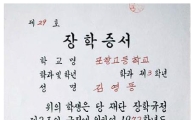 제 29 호
장학증서
학교명 포항고등학교
학과 및 학년 학과 제3학년
성명 김영동
위의 학생은 당 재단 장학규정